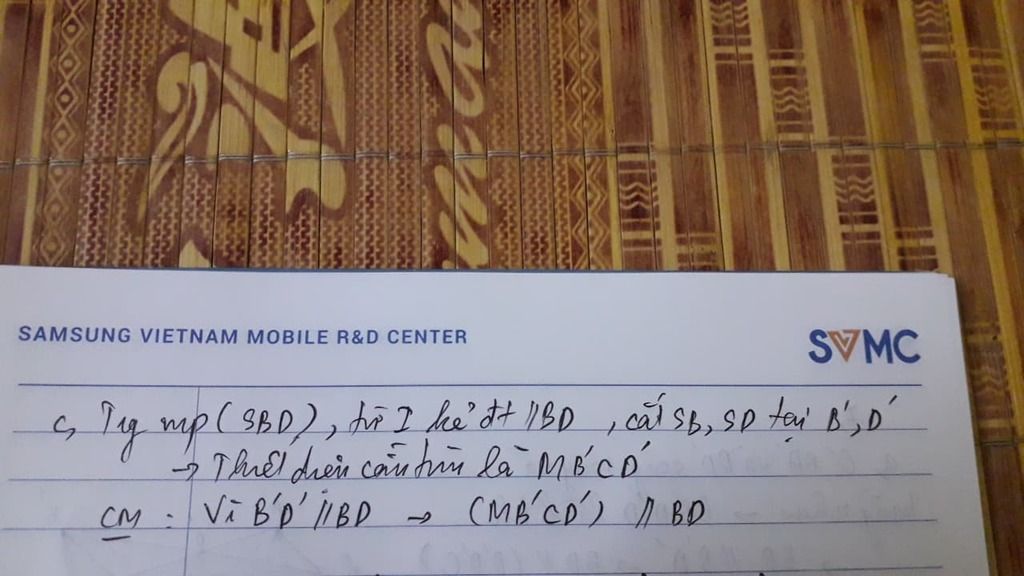 SAMSUNG VIETNAM MOBILE R&D CENTER
SVMC
c, Trg mp (SBD), từ I kẻ đt // BD, cắt SB, SD tại B', D'
→ Thiết diện cần tìm là MB'CD'
CM : Vì B'D' // BD → (MB'CD') // BD